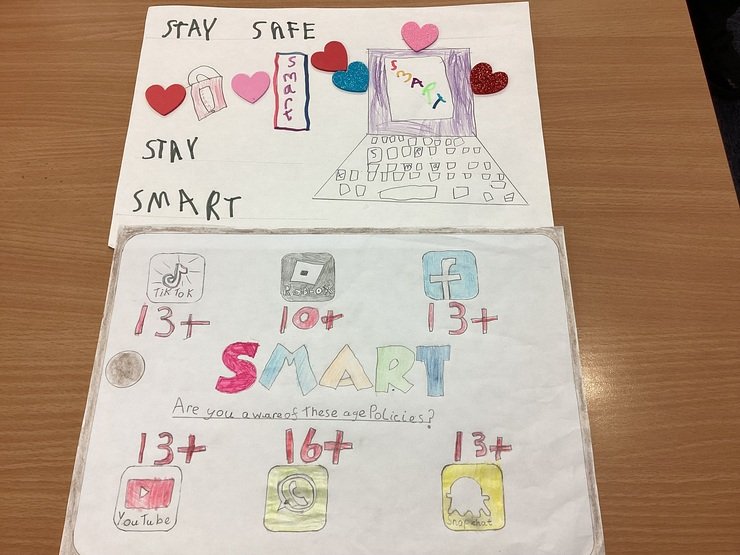 STAY SAFE
smart
SMART
STAY
SMART
TikTok
ROBLOX
13+ 10+ 13+
SMART
Are you aware of these age Policies?
13+ 16+ 13+
YouTube
Snapchat